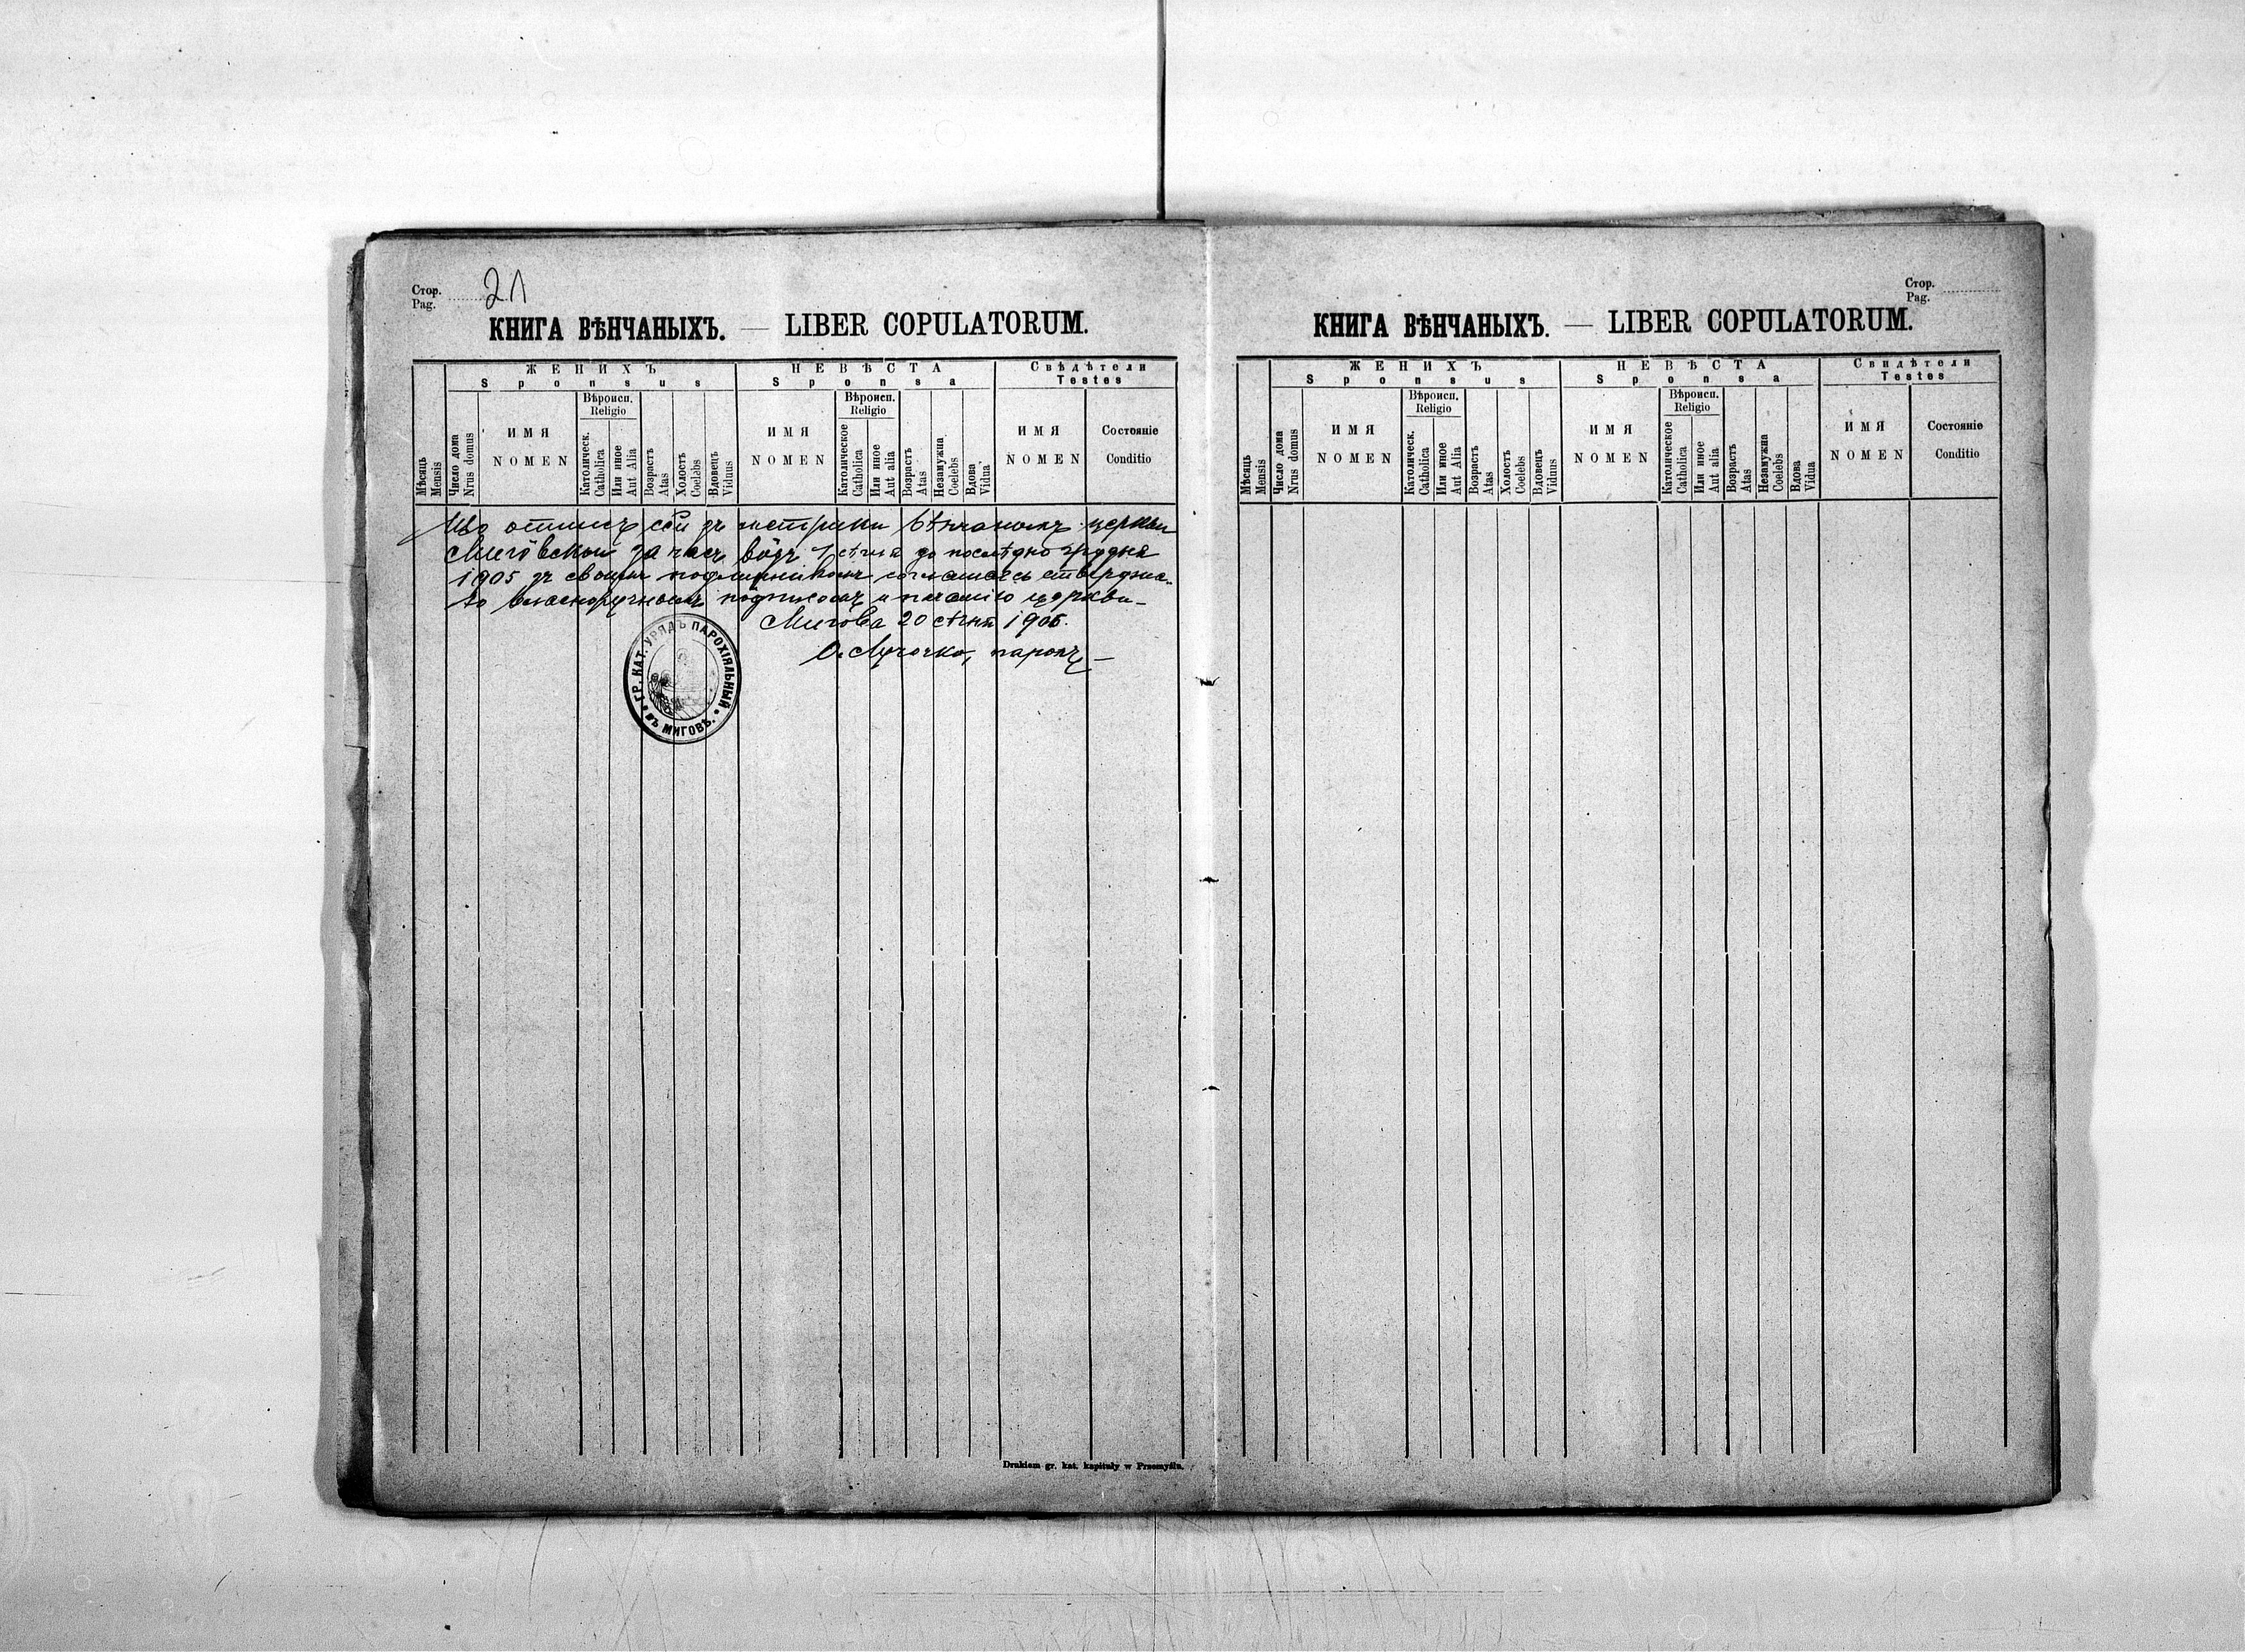 Стор.
Pag. 21
КНИГА ВѢНЧАНЫХЪ. — LIBER COPULATORUM.
ЖЕНИХЪ
Sponsus
НЕВѢСТА
Sponsa
Свѣдѣтели
Testes
Мѣсяць
Mensis
Число дома
Nrus domus
ИМЯ
NOMEN
Вѣроисп.
Religio
Католическ.
Catholica
Или иное
Aut Alia
Возрасть
Atas
Холость
Coelebs
Вдовець
Viduus
ИМЯ
NOMEN
Вѣроисп.
Religio
Католическое
Catholica
Или иное
Aut alia
Возрасть
Atas
Незамужна
Coelebs
Вдова
Vidua
ИМЯ
NOMEN
Состояніе
Conditio
Що отписъ сей зъ метрики вѣнчаныхъ церкви
Миговской за часъ вôдъ 1 сѣчня до послѣдно грудня
1905 зъ своимъ подлинникомъ соглашаесь стверджа-
ю власноручнымъ пôдписомъ и печатію церкви —
Мигова 20 сѣчня 1906.
парохъ —
ГР. КАТ. УРЯДЪ ПАРОХІЯЛЬНЫЙ
ВЪ МИГОВѢ.
Drukiem gr. kat. kapituły w Przemyślu.
Стор.
Pag.
КНИГА ВѢНЧАНЫХЪ. — LIBER COPULATORUM.
ЖЕНИХЪ
Sponsus
НЕВѢСТА
Sponsa
Свидѣтели
Testes
Мѣсяць
Mensis
Число дома
Nrus domus
ИМЯ
NOMEN
Вѣроисп.
Religio
Католическ.
Catholica
Или иное
Aut Alia
Возрасть
Atas
Холость
Coelebs
Вдовець
Viduus
ИМЯ
NOMEN
Вѣроисп.
Religio
Католическое
Catholica
Или иное
Aut alia
Возрасть
Atas
Незамужна
Coelebs
Вдова
Vidua
ИМЯ
NOMEN
Состояніе
Conditio